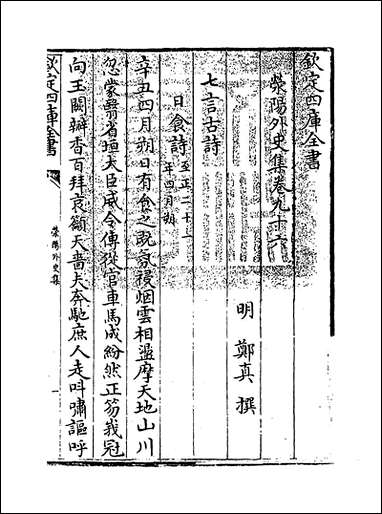 欽定四庫全書
滎陽外史集卷九十六
明 鄭真 撰
七言古詩
日食詩 至正二十一
年四月朔
辛丑四月朔日有食之既氛祲烟雲相盪摩天地山川
忽蒙翳省垣大臣威令傳從官車馬咸紛然正笏峩冠
向玉闕瓣香百拜哀籲天嗇夫奔馳庶人走呌嘯謳呼
欽定四庫全書
滎陽外史集
一